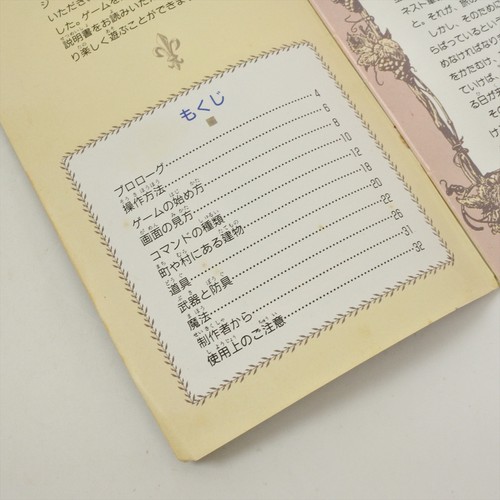 いただき
した。ゲームを
説明書をお読みいた
り楽しく遊ぶことができま
もくじ
プロローグ 4
操作方法 6
ゲームの始め方 8
画面の見方 10
コマンドの種類 12
町や村にある建物 18
道具 20
武器と防具 22
魔法 26
制作者から 31
使用上のご注意 32
ネスト
と、それが、旅の
しかし、そのた
らばっているという
めなければなりま
をかたむけ、
ていけば、
る日が